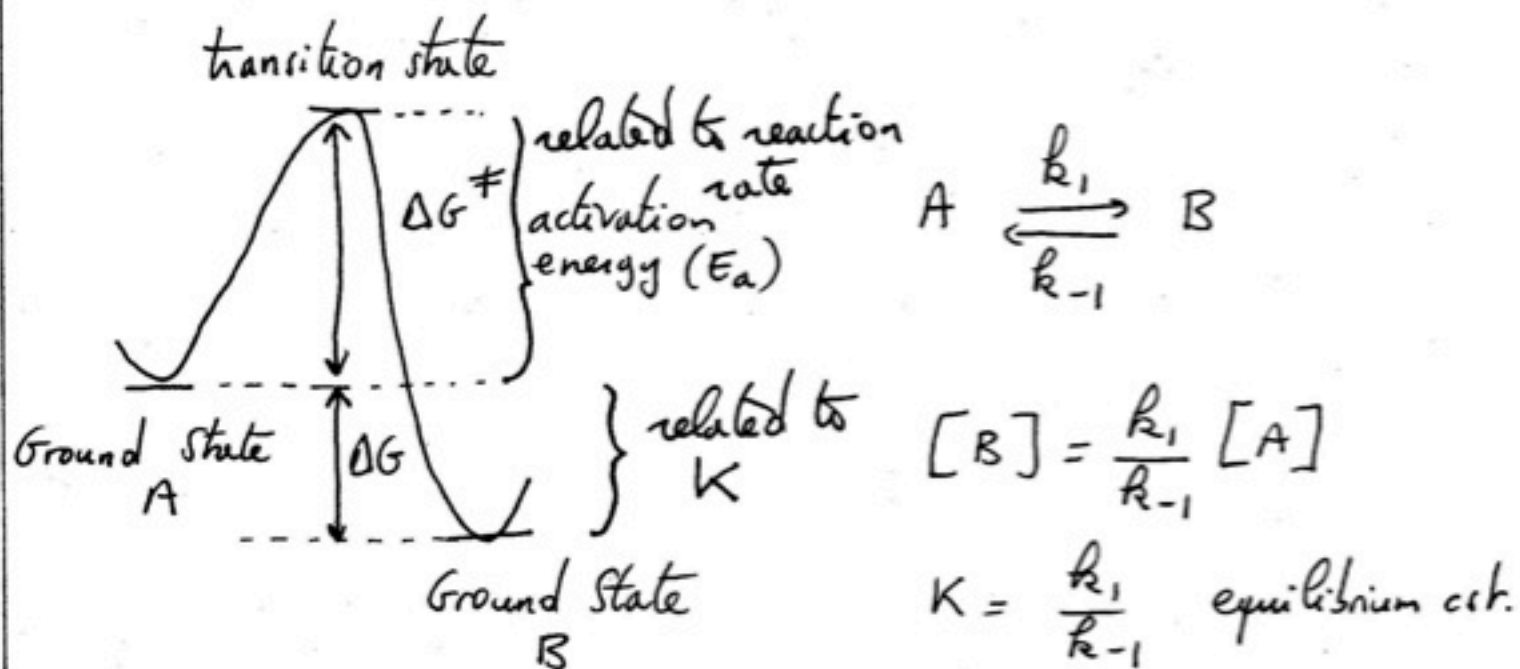 transition state
ΔG≠
related to reaction
rate
activation
energy (Ea)
A k₁ B
k₋₁
Ground State
A
ΔG
related to
K
[B] = k₁/k₋₁ [A]
Ground State
B
K = k₁/k₋₁ equilibrium cst.